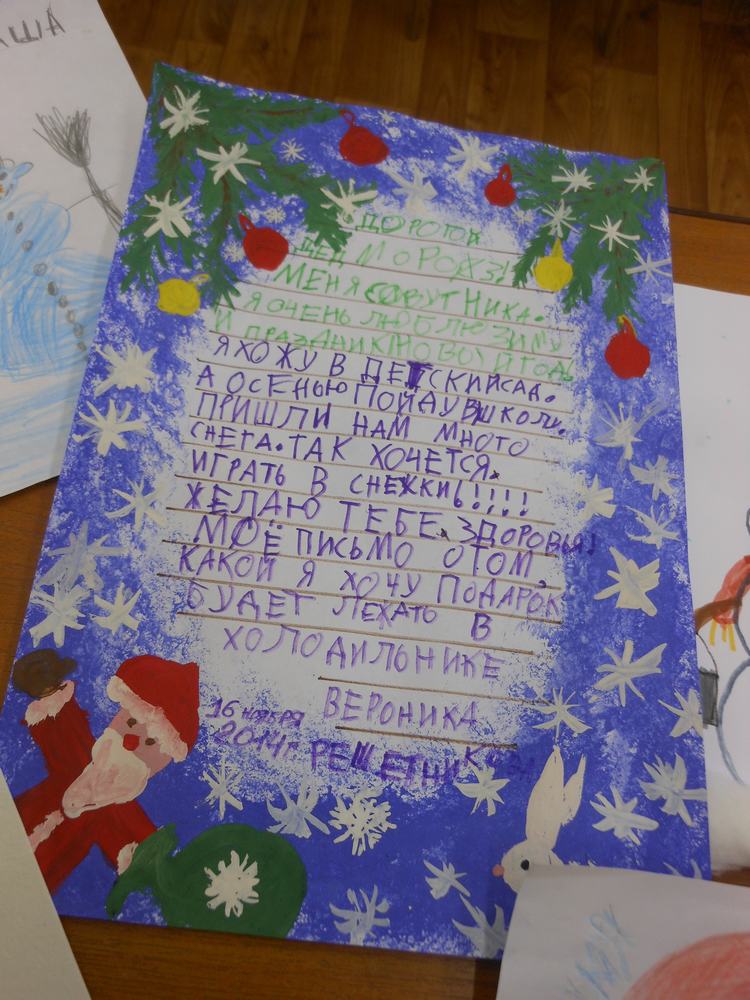 ДОРОГОЙ
ДЕД МОРОЗ!
МЕНЯ ЗОВУТ НИКА.
Я ОЧЕНЬ ЛЮБЛЮ ЗИМУ
И ПРАЗДНИК НОВЫЙ ГОД.
Я ХОЖУ В ДЕТСКИЙ САД.
А ОСЕНЬЮ ПОЙДУ В ШКОЛУ.
ПРИШЛИ НАМ МНОГО
СНЕГА. ТАК ХОЧЕТСЯ
ИГРАТЬ В СНЕЖКИ!!!!
ЖЕЛАЮ ТЕБЕ ЗДОРОВЬЯ!
МОЁ ПИСЬМО О ТОМ,
КАКОЙ Я ХОЧУ ПОДАРОК
БУДЕТ ЛЕЖАТЬ В
ХОЛОДИЛЬНИКЕ
ВЕРОНИКА
16 НОЯБРЯ
2014г. РЕШЕТНИКОВА